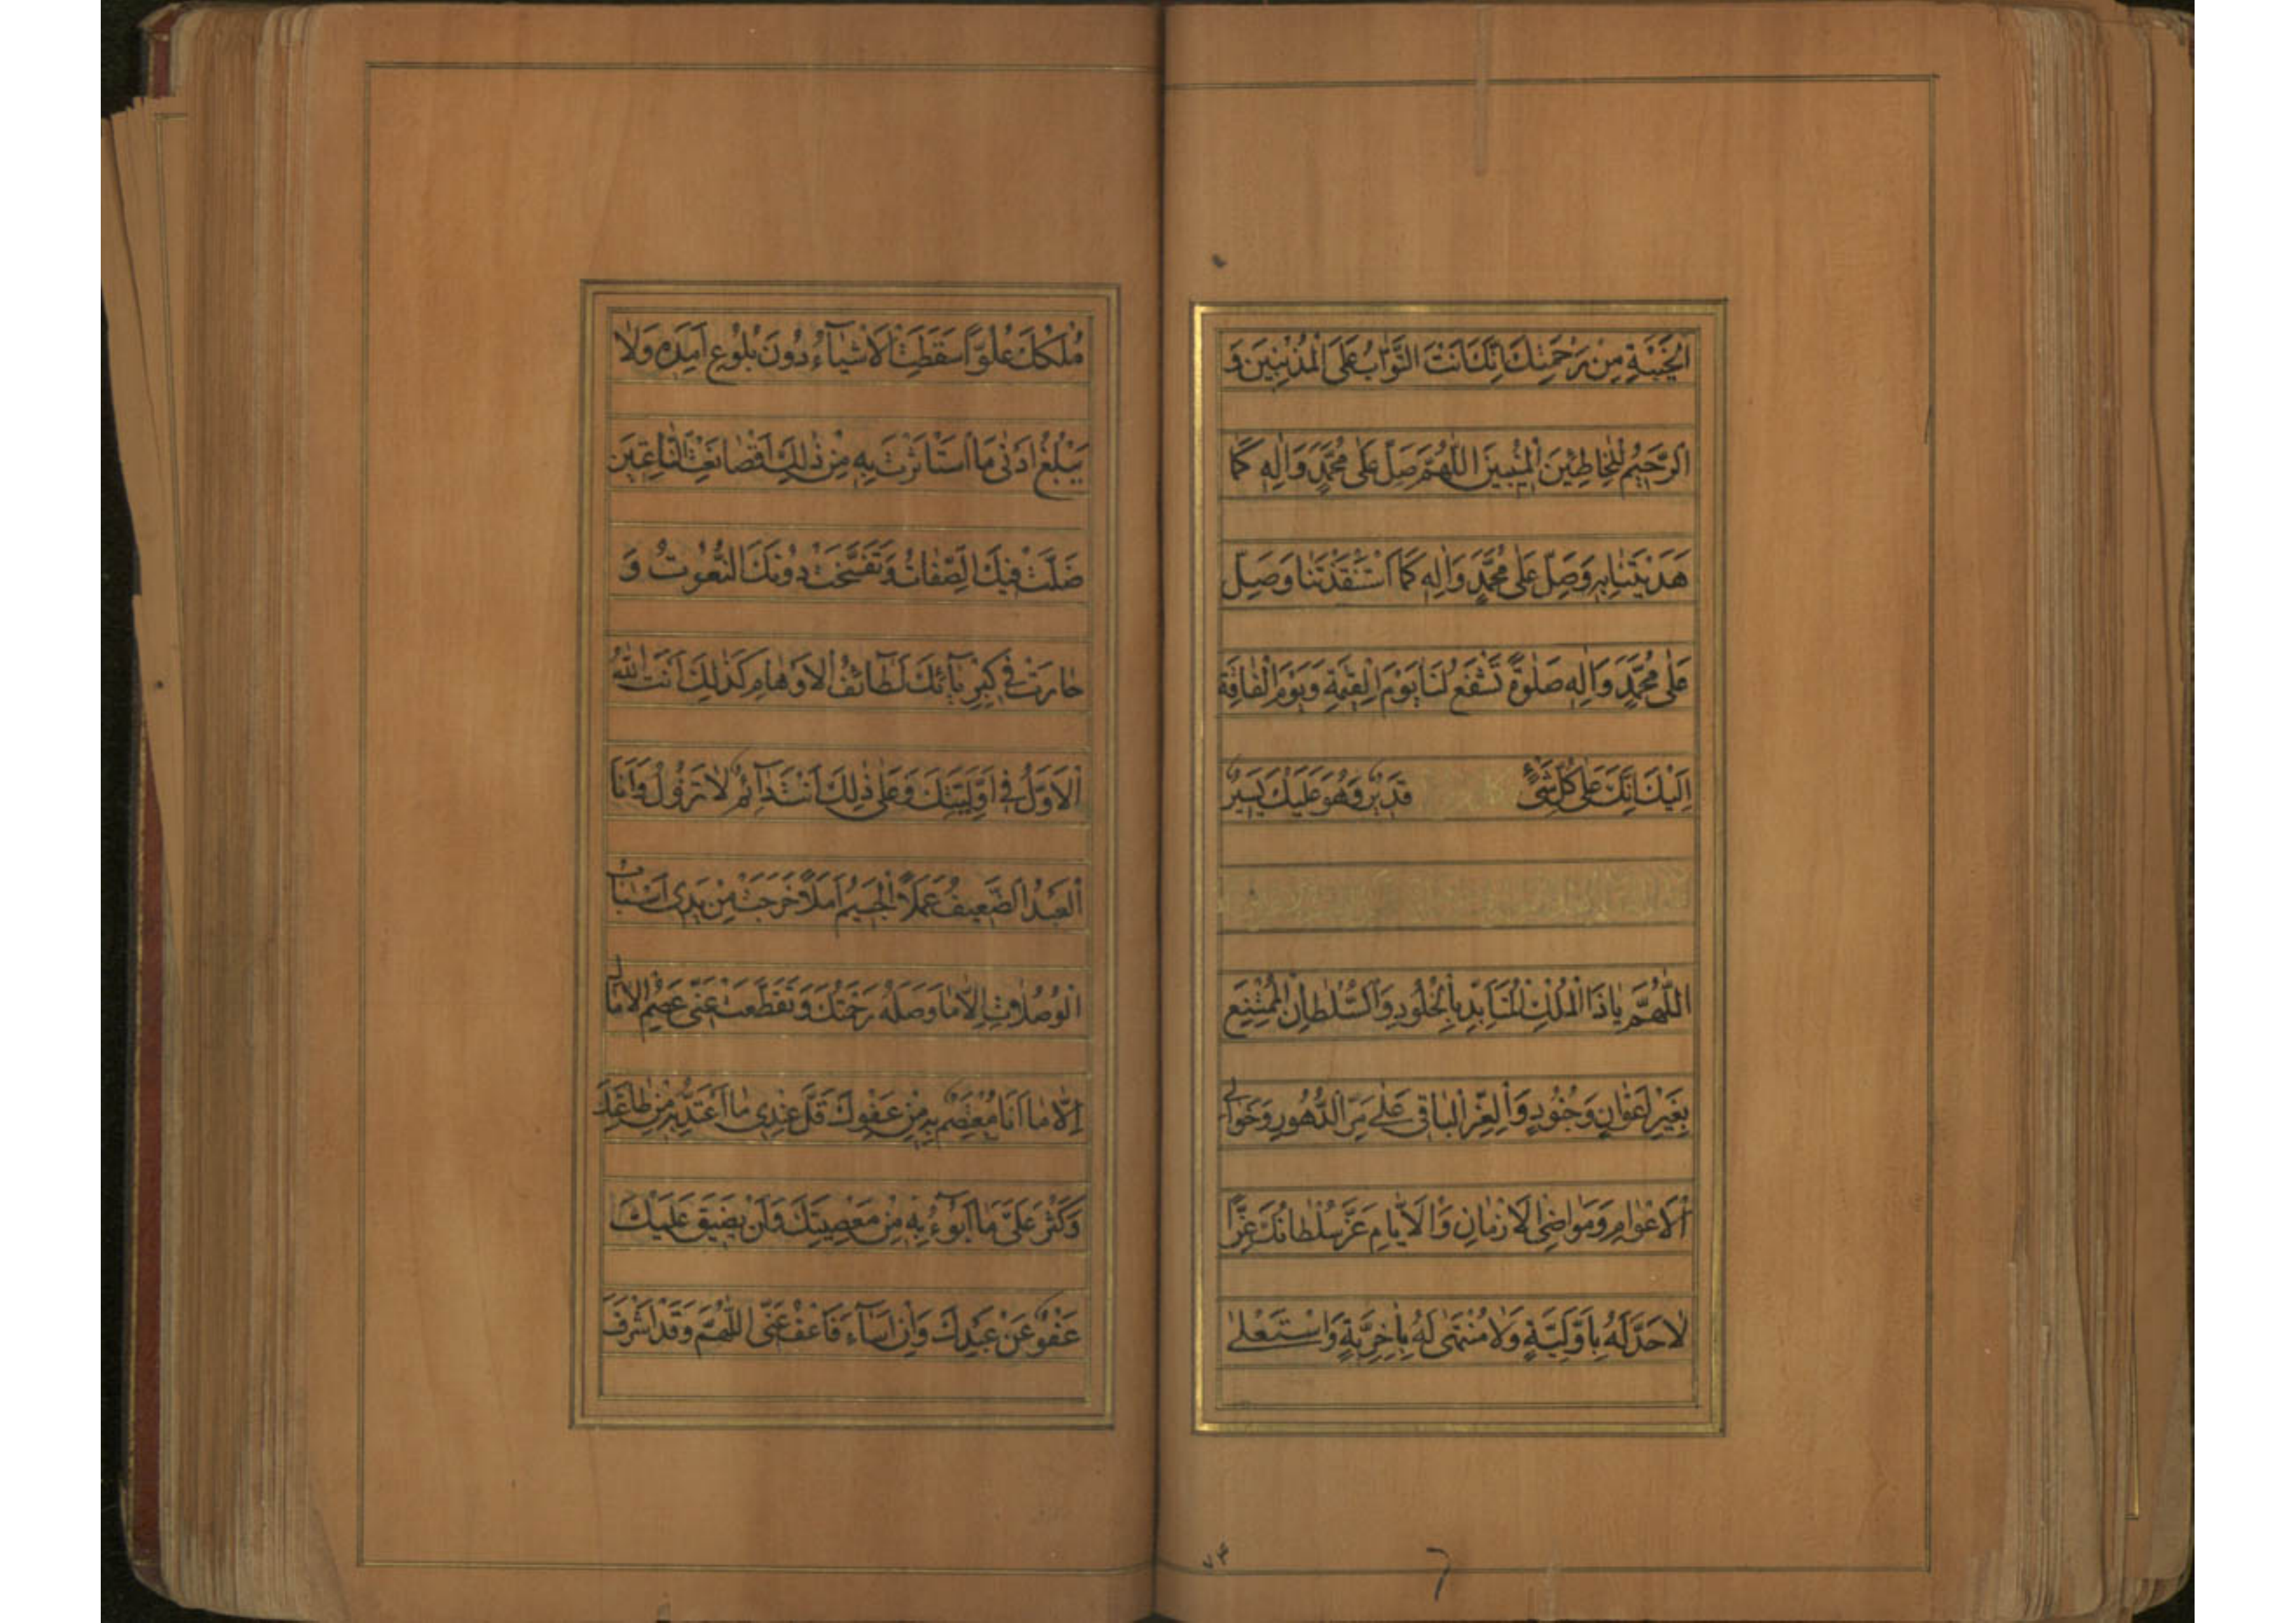 الْخَيْبَةِ مِنْ رَحْمَتِكَ اِنَّكَ اَنْتَ التَّوّٰابُ عَلَى الْمُذْنِبِينَ وَ
الرَّحِيمُ لِلْخٰاطِئِينَ الْمُنِيبِينَ اللّٰهُمَّ صَلِّ عَلٰى مُحَمَّدٍ وَاٰلِهِ كَمٰا
هَدَيْتَنٰا بِهِ وَصَلِّ عَلٰى مُحَمَّدٍ وَاٰلِهِ كَمَا اسْتَنْقَذْتَنٰا وَصَلِّ
عَلٰى مُحَمَّدٍ وَاٰلِهِ صَلٰوةً تَشْفَعُ لَنٰا يَوْمَ الْقِيٰمَةِ وَيَوْمَ الْفٰاقَةِ
اِلَيْكَ اِنَّكَ عَلٰى كُلِّ شَيْءٍ قَدِيرٌ وَهُوَ عَلَيْكَ يَسِيرٌ
اللّٰهُمَّ يٰا ذَا الْمُلْكِ الْمُتَاَبِّدِ بِالْخُلُودِ وَالسُّلْطٰانِ الْمُمْتَنِعِ
بِغَيْرِ اَعْوٰانٍ وَجُنُودٍ وَالْعِزِّ الْبٰاقِى عَلٰى مَرِّ الدُّهُورِ وَخَوٰالِى
الْاَعْوٰامِ وَمَوٰاضِى الْاَزْمٰانِ وَالْاَيّٰامِ عَزَّ سُلْطٰانُكَ عِزًّا
لٰا حَدَّ لَهُ بِاَوَّلِيَّةٍ وَلٰا مُنْتَهٰى لَهُ بِاٰخِرِيَّةٍ وَاسْتَعْلٰى
٧۴
مُلْكُكَ عُلُوًّا سَقَطَتِ الْاَشْيٰآءُ دُونَ بُلُوغِ اَمَدِهِ وَلٰا
يَبْلُغُ اَدْنٰى مَا اسْتَاْثَرْتَ بِهِ مِنْ ذٰلِكَ اَقْصٰا نَعْتِ النّٰاعِتِينَ
ضَلَّتْ فِيكَ الصِّفٰاتُ وَتَفَسَّخَتْ دُونَكَ النُّعُوتُ وَ
حٰارَتْ فِى كِبْرِيٰآئِكَ لَطٰآئِفُ الْاَوْهٰامِ كَذٰلِكَ اَنْتَ اللّٰهُ
الْاَوَّلُ فِى اَوَّلِيَّتِكَ وَعَلٰى ذٰلِكَ اَنْتَ دٰآئِمٌ لٰا تَزُولُ وَاَنَا
الْعَبْدُ الضَّعِيفُ عَمَلًا الْجَسِيمُ اَمَلًا خَرَجَتْ مِنْ يَدِى اَسْبٰابُ
الْوُصُلٰاتِ اِلّٰا مٰا وَصَلَهُ رَحْمَتُكَ وَتَقَطَّعَتْ عَنِّى عِصَمُ الْاٰمٰالِ
اِلّٰا مٰا اَنَا مُعْتَصِمٌ بِهِ مِنْ عَفْوِكَ قَلَّ عِنْدِى مٰا اَعْتَدُّ بِهِ مِنْ طٰاعَتِكَ
وَكَثُرَ عَلَىَّ مٰا اَبُوٓءُ بِهِ مِنْ مَعْصِيَتِكَ وَلَنْ يَضِيقَ عَلَيْكَ
عَفْوٌ عَنْ عَبْدِكَ وَاِنْ اَسٰآءَ فَاعْفُ عَنِّى اللّٰهُمَّ وَقَدْ اَشْرَفَ